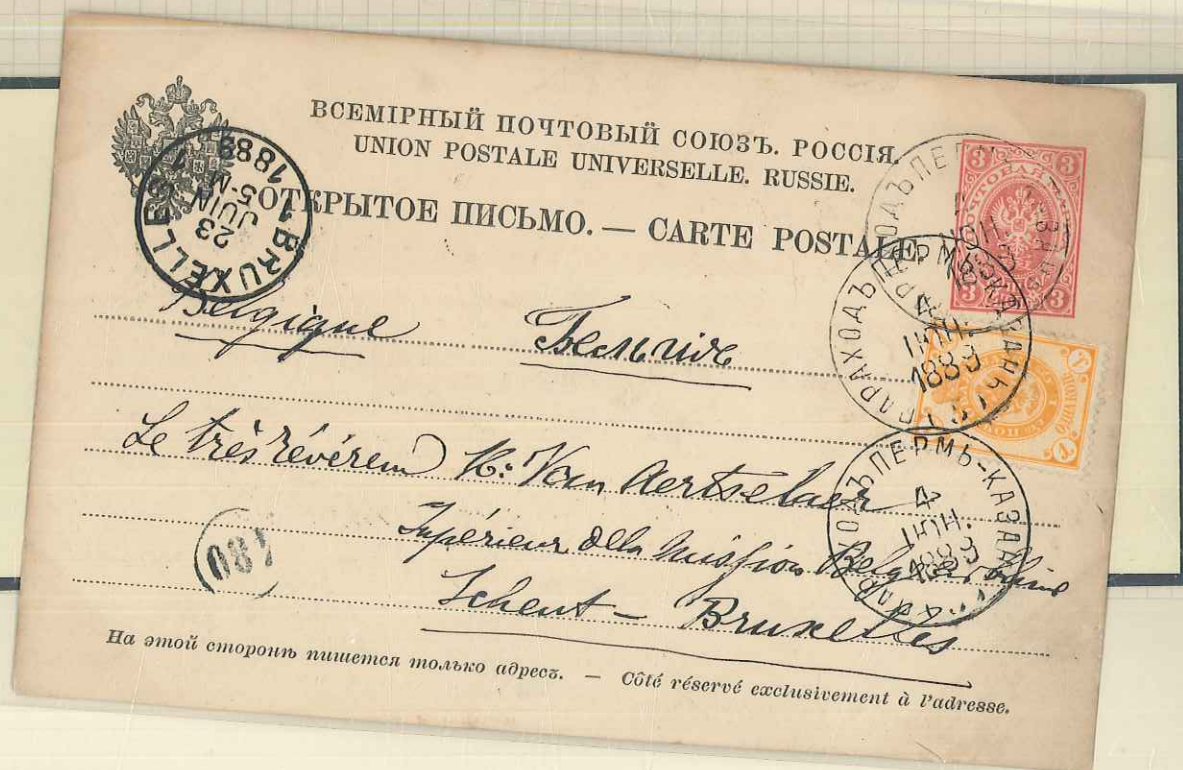 ВСЕМІРНЫЙ ПОЧТОВЫЙ СОЮЗЪ. РОССІЯ.
UNION POSTALE UNIVERSELLE. RUSSIE.
ОТКРЫТОЕ ПИСЬМО. — CARTE POSTALE.
BRUXELLES 1
23
JUIN
5-M
1889
3 3
3 3
ПАРАХОДЪ ПЕРМЬ-КАЗАНЬ
4
ІЮН.
1889
ПЕРМЬ-КАЗАН
4
ІЮН.
1889
1
1
Belgique Бельгия
Le très révérend Van Aertselaer
Supérieur della mission Belge
Scheut — Bruxelles
180
На этой сторонѣ пишется только адресъ. — Côté réservé exclusivement à l'adresse.